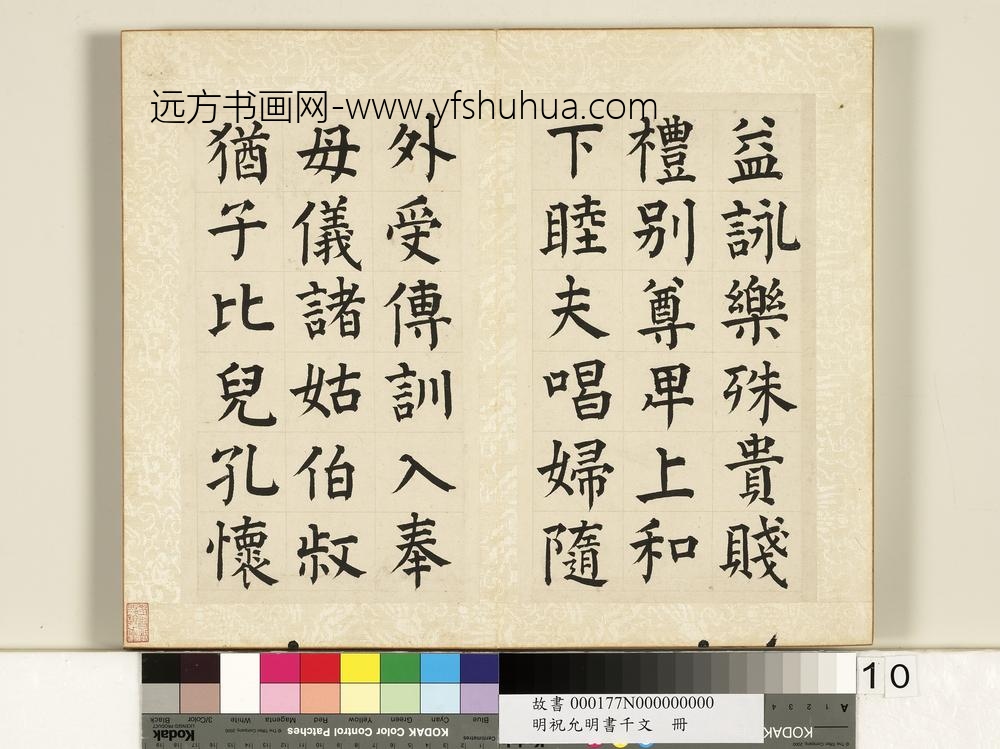 远方书画网-www.yfshuhua.com
益詠樂殊貴賤
禮别尊卑上和
下睦夫唱婦隨
外受傅訓入奉
母儀諸姑伯叔
猶子比兒孔懷
10
故書 000177N000000000
明祝允明書千文 冊
Black
3/Color
White
Magenta
Red
Yellow
Green
Cyan
Blue
Kodak
LICENSED PRODUCT
KODAK Color Control Patches
Centimetres
KODAK
A 1 2 3 4